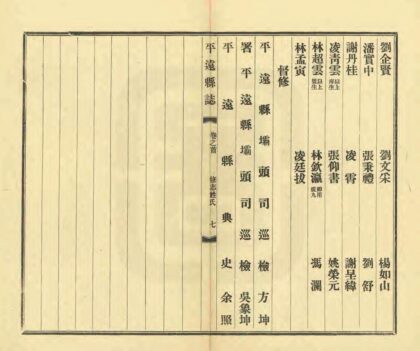 劉企賢 劉文 楊如山
潘實中 張秉禮 劉舒
謝丹桂 凌霄 謝呈緯
凌青雲 以上生 張仰書 姚榮元
林超雲 以上生 林欽瀛 馮瀾
林孟寅 凌廷拔
督修
平遠縣壩頭司巡檢方坤
署平遠縣壩頭司巡檢吳象坤
平遠縣典史余照
平遠縣誌 卷之首 修志姓氏 七